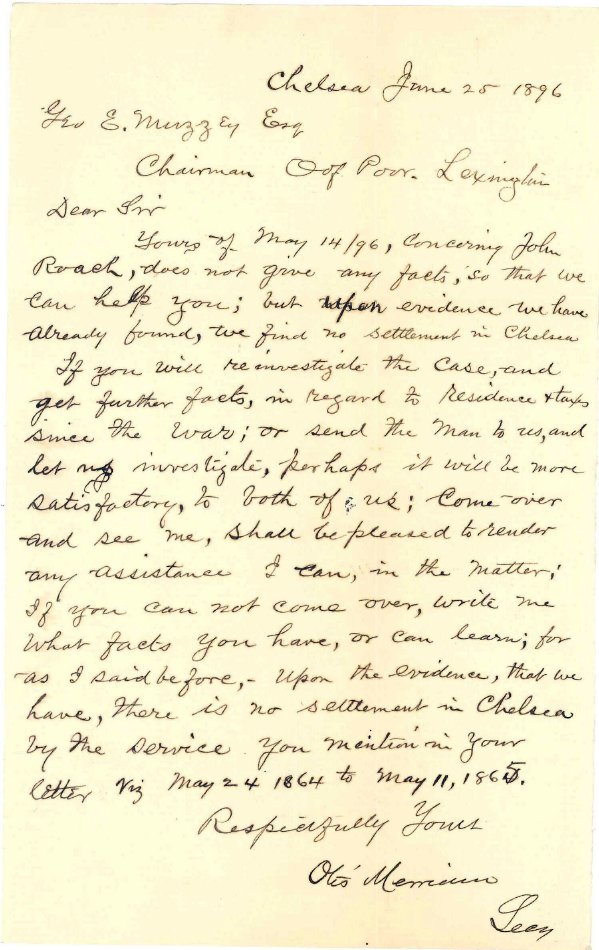 Chelsea June 25 1896
Geo E. Muzzey Esq
Chairman O of Poor. Lexington
Dear Sir
Yours of May 14/96, Concering John
Roach, does not give any facts, so that we
can help you; but upon evidence we have
already found, we find no settlement in Chelsea
If you will reinvestigate the case, and
get further facts, in regard to residence & taxes
since the war; or send the man to us, and
let us investigate, perhaps it will be more
satisfactory, to both of us; Come over
and see me, shall be pleased to render
any assistance I can, in the matter;
If you can not come over, write me
what facts you have, or can learn; for
as I said before, - upon the evidence, that we
have, there is no settlement in Chelsea
by the service you mention in your
letter Viz May 24 1864 to May 11, 1865.
Respectfully Yours
Otis Merriam
Secy